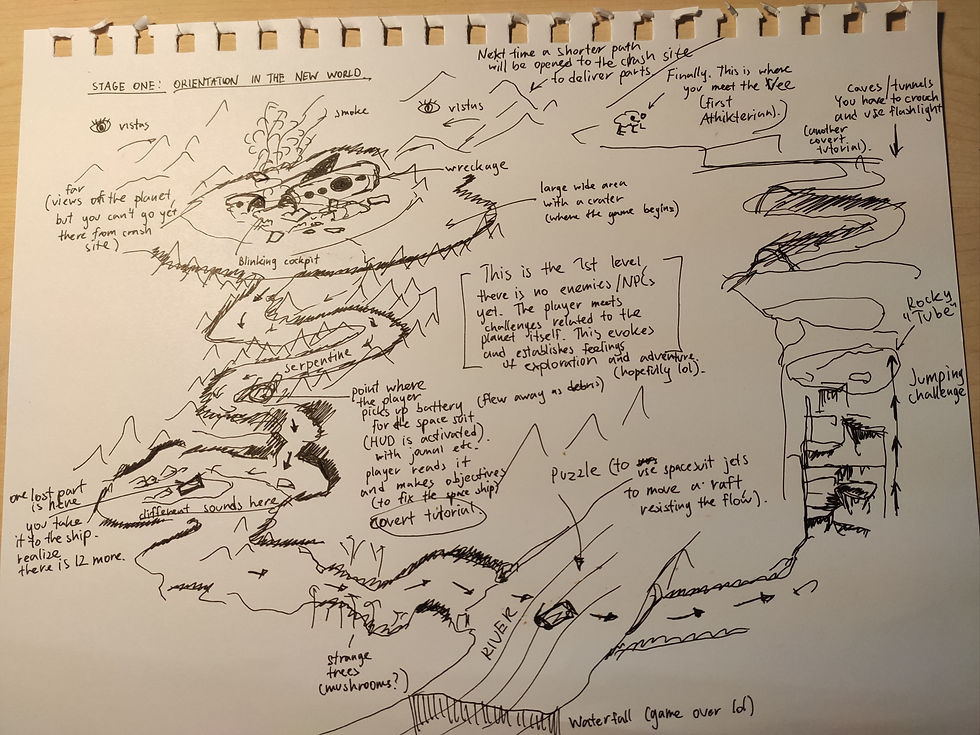 STAGE ONE: ORIENTATION IN THE NEW WORLD
Next time a shorter path
will be opened to the crash site
to deliver parts
Finally. This is where
you meet the
(first
Athikterian).
caves/tunnels
You have to crouch
and use flashlight
(another
covert
tutorial).
vistas
smoke
vistas
wreckage
far
(views of the planet,
but you can't go yet
there from crash
site)
large wide area
with a crater
(where the game begins)
Blinking cockpit
This is the 1st level
there is no enemies/NPCs
yet. The player meets
challenges related to the
planet itself. This evokes
and establishes feelings
of exploration and adventure.
(hopefully lol).
Rocky
"Tube"
serpentine
point where
the player
picks up battery (flew away as debris)
for the space suit
(HUD is activated).
with jornal etc.
player reads it
and makes objectives
(to fix the space ship)
covert tutorial
Jumping
challenge
one lost part
is here
you take
it to the ship.
realize
there is 12 more.
different sounds here
Puzzle (to use spacesuit jets
to move a raft
resisting the flow).
RIVER
strange
trees
(mushrooms?)
Waterfall (game over lol)